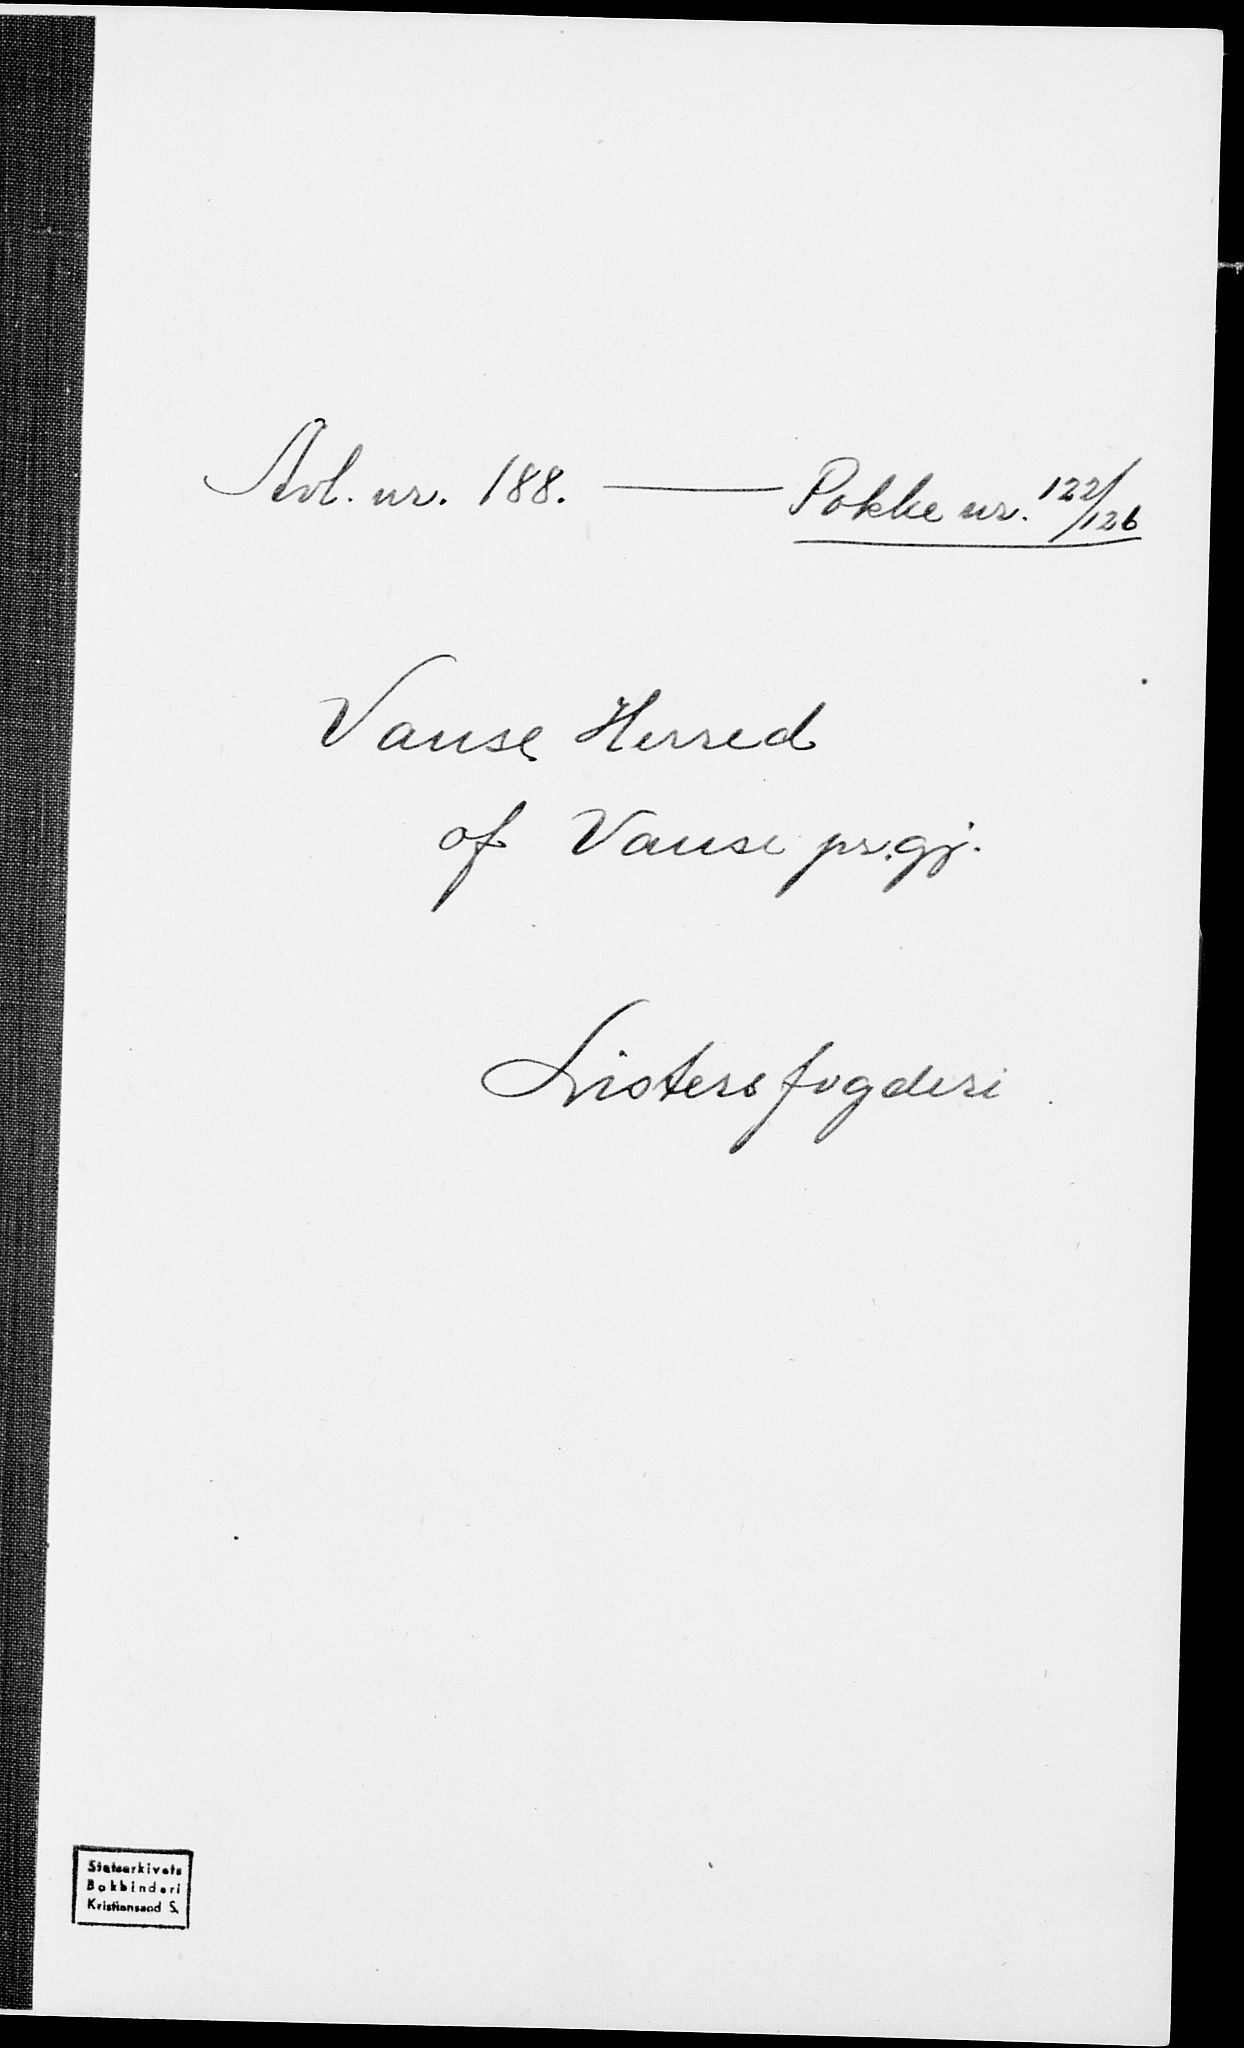 Avl. nr. 188. — Pakke nr. 122/126
Vanse Herred
af Vanse pr.gj.
Listers fogderi
Statsarkivets
Bokbinderi
Kristiansand S.